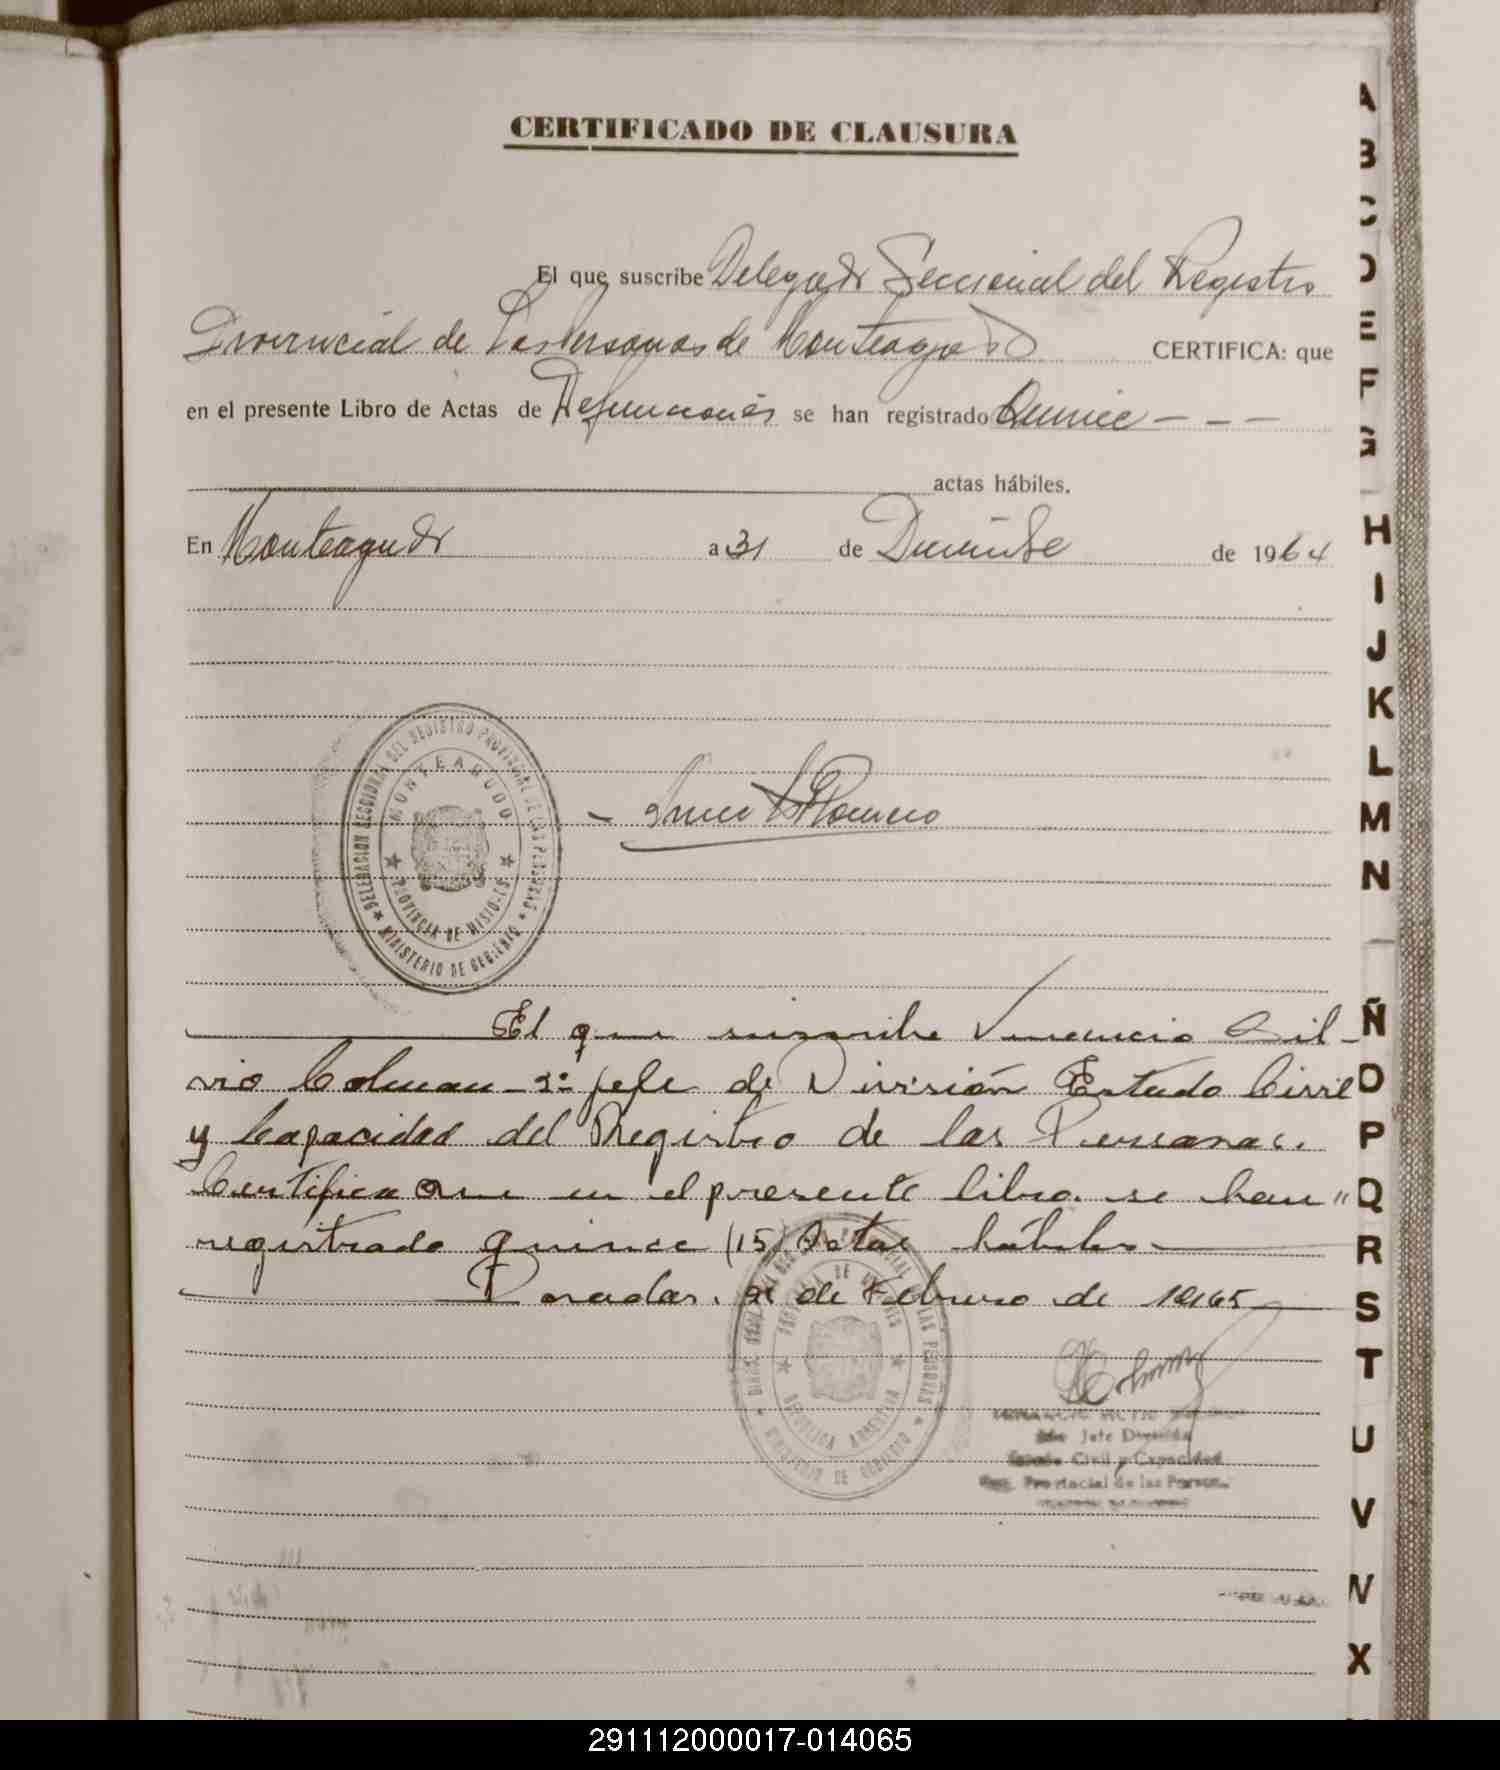 CERTIFICADO DE CLAUSURA
El que suscribe Delegado Seccional del Registro
Provincial de Las Personas de Monteagudo CERTIFICA: que
en el presente Libro de Actas de Defunciones se han registrado Quince - - -
actas hábiles.
En Monteagudo a 31 de Diciembre de 1964
DELEGACION SECCIONAL DEL REGISTRO PROVINCIAL DE LAS PERSONAS
MONTEAGUDO
PROVINCIA DE MISIONES
MINISTERIO DE GOBIERNO
Romero
El que suscribe Venancio Sil-
vio Colman - 2º Jefe de División Estado Civil
y Capacidad del Registro de las Personas.
Certifica Que en el presente libro. se han "
registrado quince (15) Actas hábiles
Posadas. de Febrero de 1965
REPUBLICA ARGENTINA
MINISTERIO DE GOBIERNO
Jefe División
Civil y Capacidad
Reg. Provincial de las Person.
A
B
C
D
E
F
G
H
I
J
K
L
M
N
Ñ
O
P
Q
R
S
T
U
V
W
X
291112000017-014065